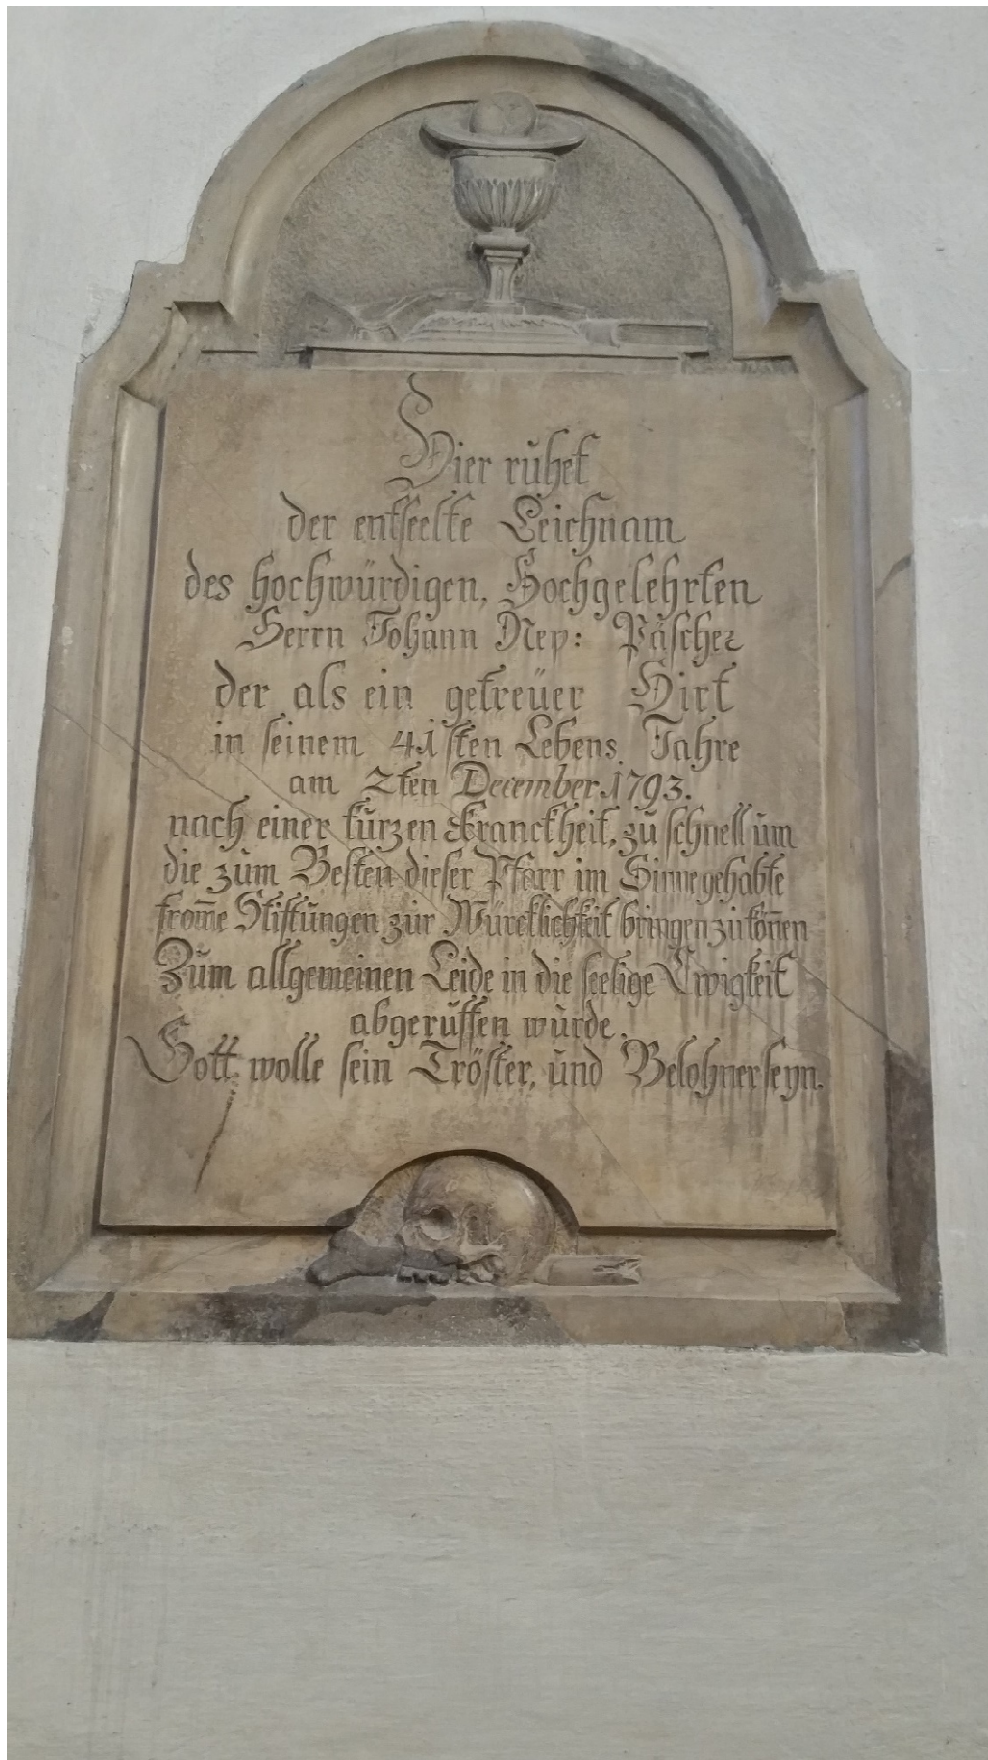 Hier ruhet
der entseelte Leichnam
des hochwürdigen, Hochgelehrten
Herrn Johann Nep: Päscher
der als ein getreüer Hirt
in seinem 41sten Lebens Jahre
am 2ten December 1793.
nach einer kurzen Kranckheit, zu schnell um
die zum Besten dieser Pfarr im Sinne gehabte
from̅e Stiftungen zur Würcklichkeit bringen zu kön̅en
Zum allgemeinen Leide in die seelige Ewigkeit
abgeruffen wurde.
Gott wolle sein Tröster, und Belohner seyn.